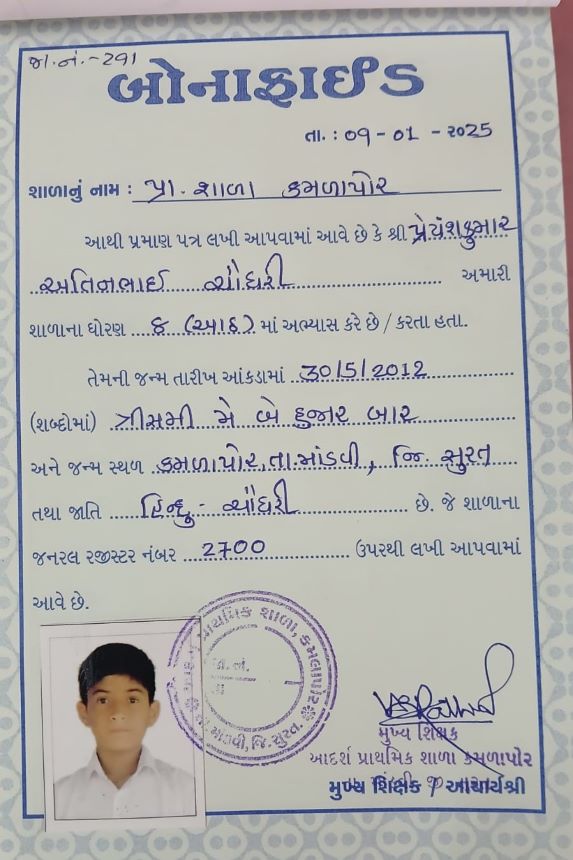 જા.નં.-291
બોનાફાઈડ
તા. : 09-01-2025
શાળાનું નામ : પ્રા. શાળા કમળાપોર
આથી પ્રમાણ પત્ર લખી આપવામાં આવે છે કે શ્રી પ્રેયંશકુમાર
અતિનભાઈ ચૌધરી અમારી
શાળાના ધોરણ ૮ (આઠ) માં અભ્યાસ કરે છે / કરતા હતા.
તેમની જન્મ તારીખ આંકડામાં 30/5/2012
(શબ્દોમાં) ત્રીસમી મે બે હજાર બાર
અને જન્મ સ્થળ કમળાપોર, તા.માંડવી, જિ. સુરત
તથા જાતિ હિન્દુ - ચૌધરી છે. જે શાળાના
જનરલ રજીસ્ટર નંબર 2700 ઉપરથી લખી આપવામાં
આવે છે.
પ્રાથમિક શાળા, કમલાપોર
તા. માંડવી, જિ. સુરત.
મુખ્ય શિક્ષક
આદર્શ પ્રાથમિક શાળા કમળાપોર
મુખ્ય શિક્ષક / આચાર્યશ્રી